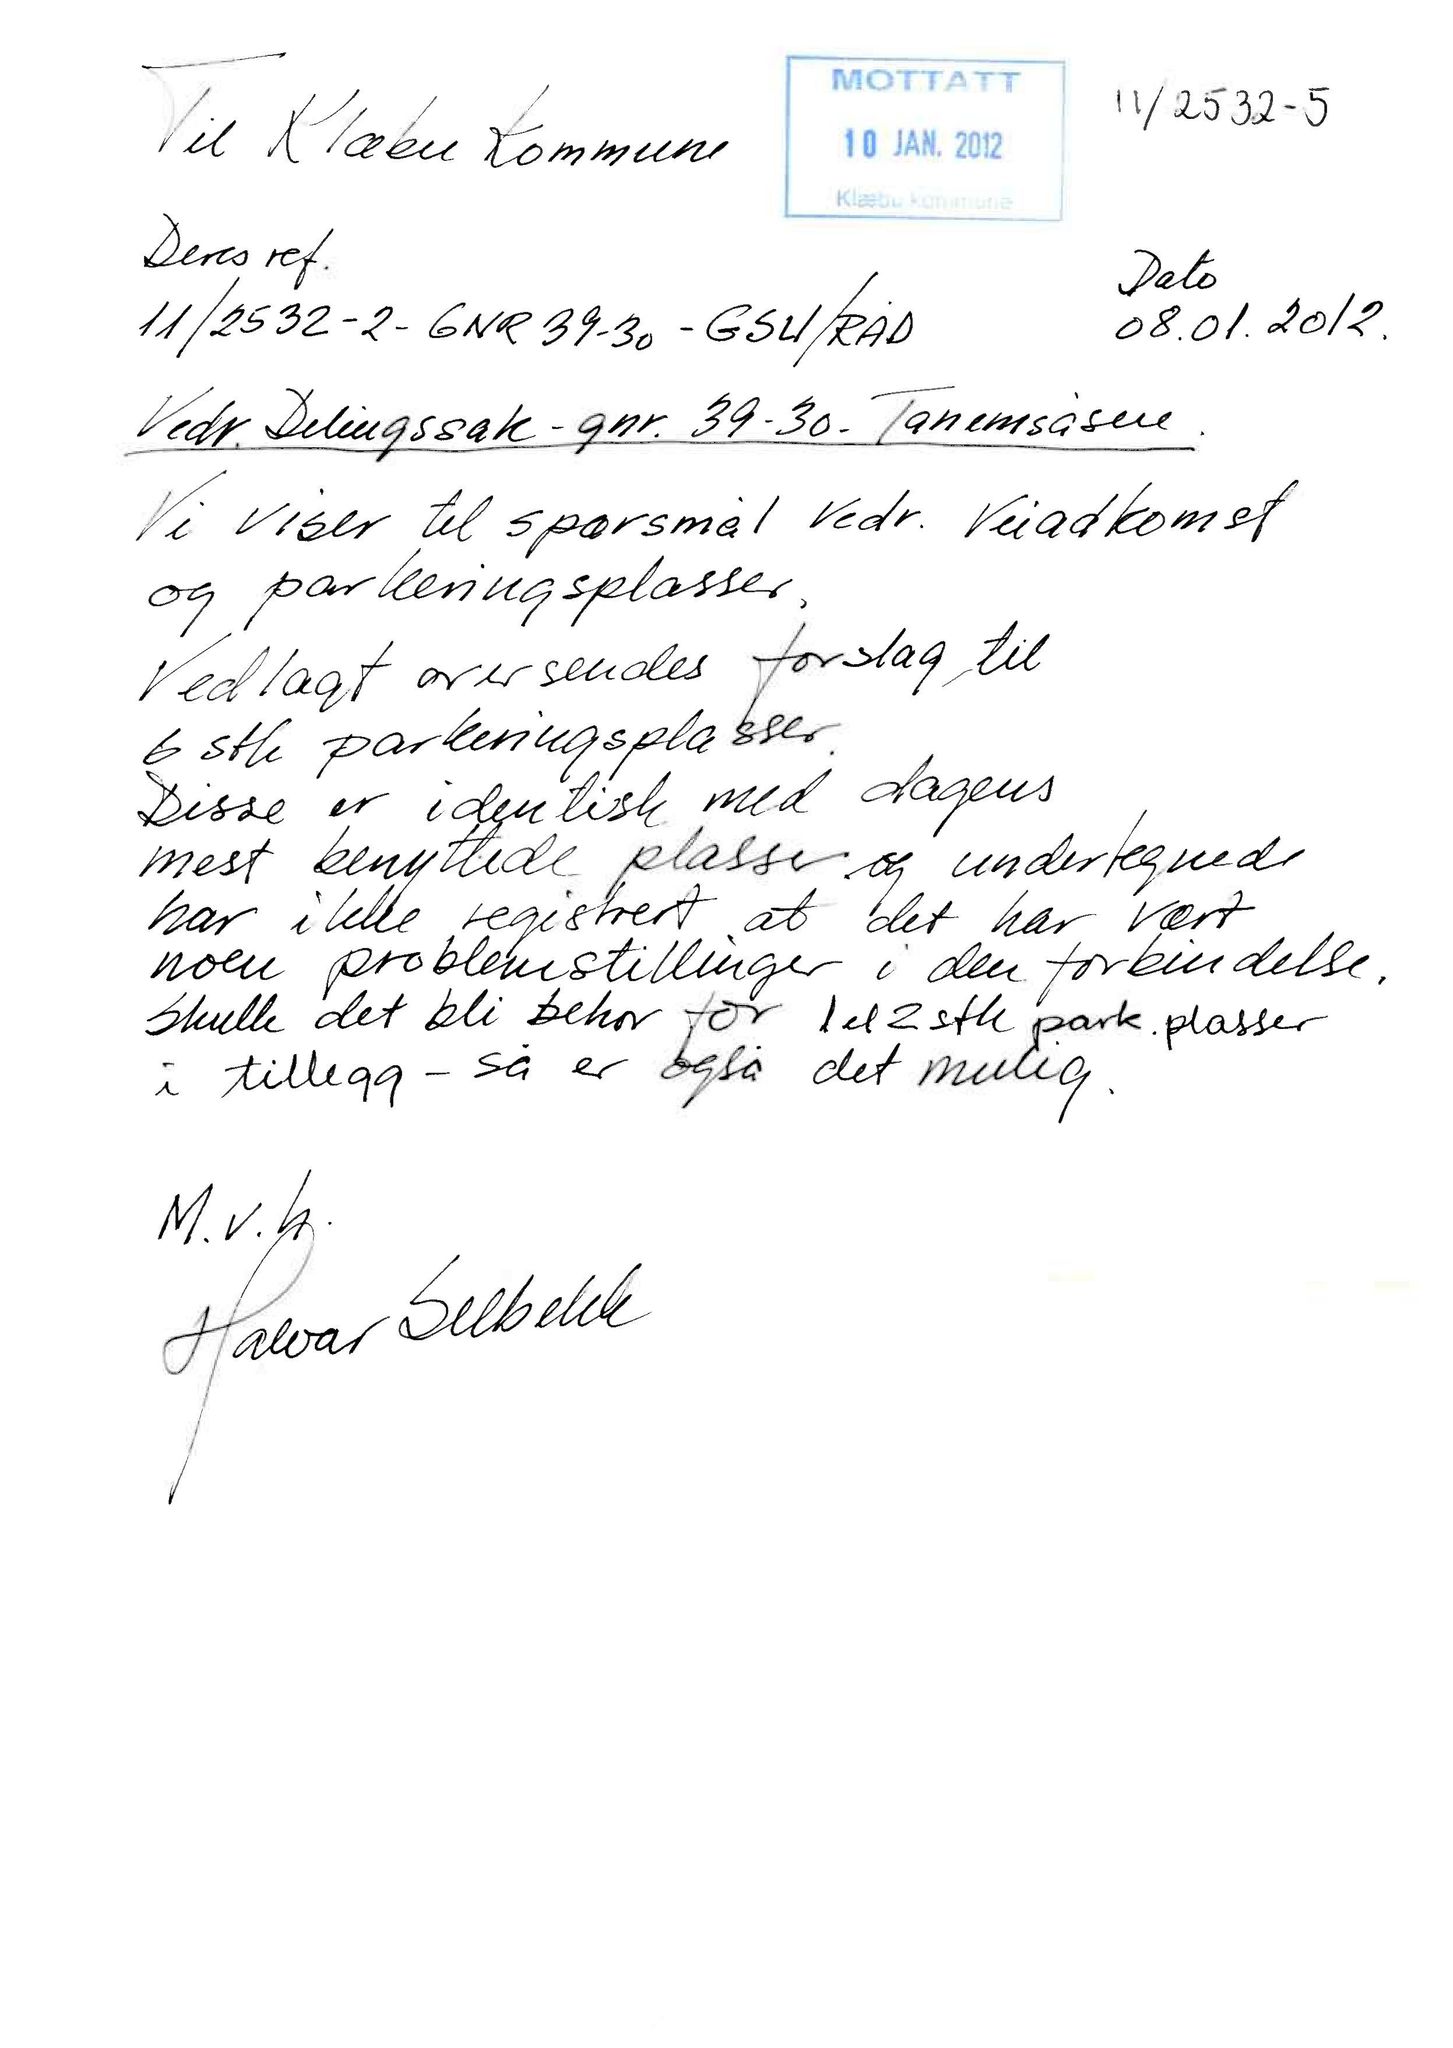 MOTTATT
10 JAN. 2012
Klæbu kommune
11/2532-5
Til Klæbu Kommune
Deres ref.
11/2532-2- GNR 39-30 - GSU/RÅD
Dato
08.01.2012.
Vedr. Delingssak - gnr. 39-30- Tanemsåsen.
Vi viser til spørsmål vedr. Veiadkomst
og parkeringsplasser.
Vedlagt oversendes forslag til
6 stk parkeringsplasser.
Disse er identisk med dagens
mest benyttede plasser og undertegnede
har ikke registrert at det har vært
noen problemstillinger i den forbindelse.
Skulle det bli behov for 1 el 2 stk park.plasser
i tillegg - så er også det mulig.
M.v.h.
Halvar Selbekk